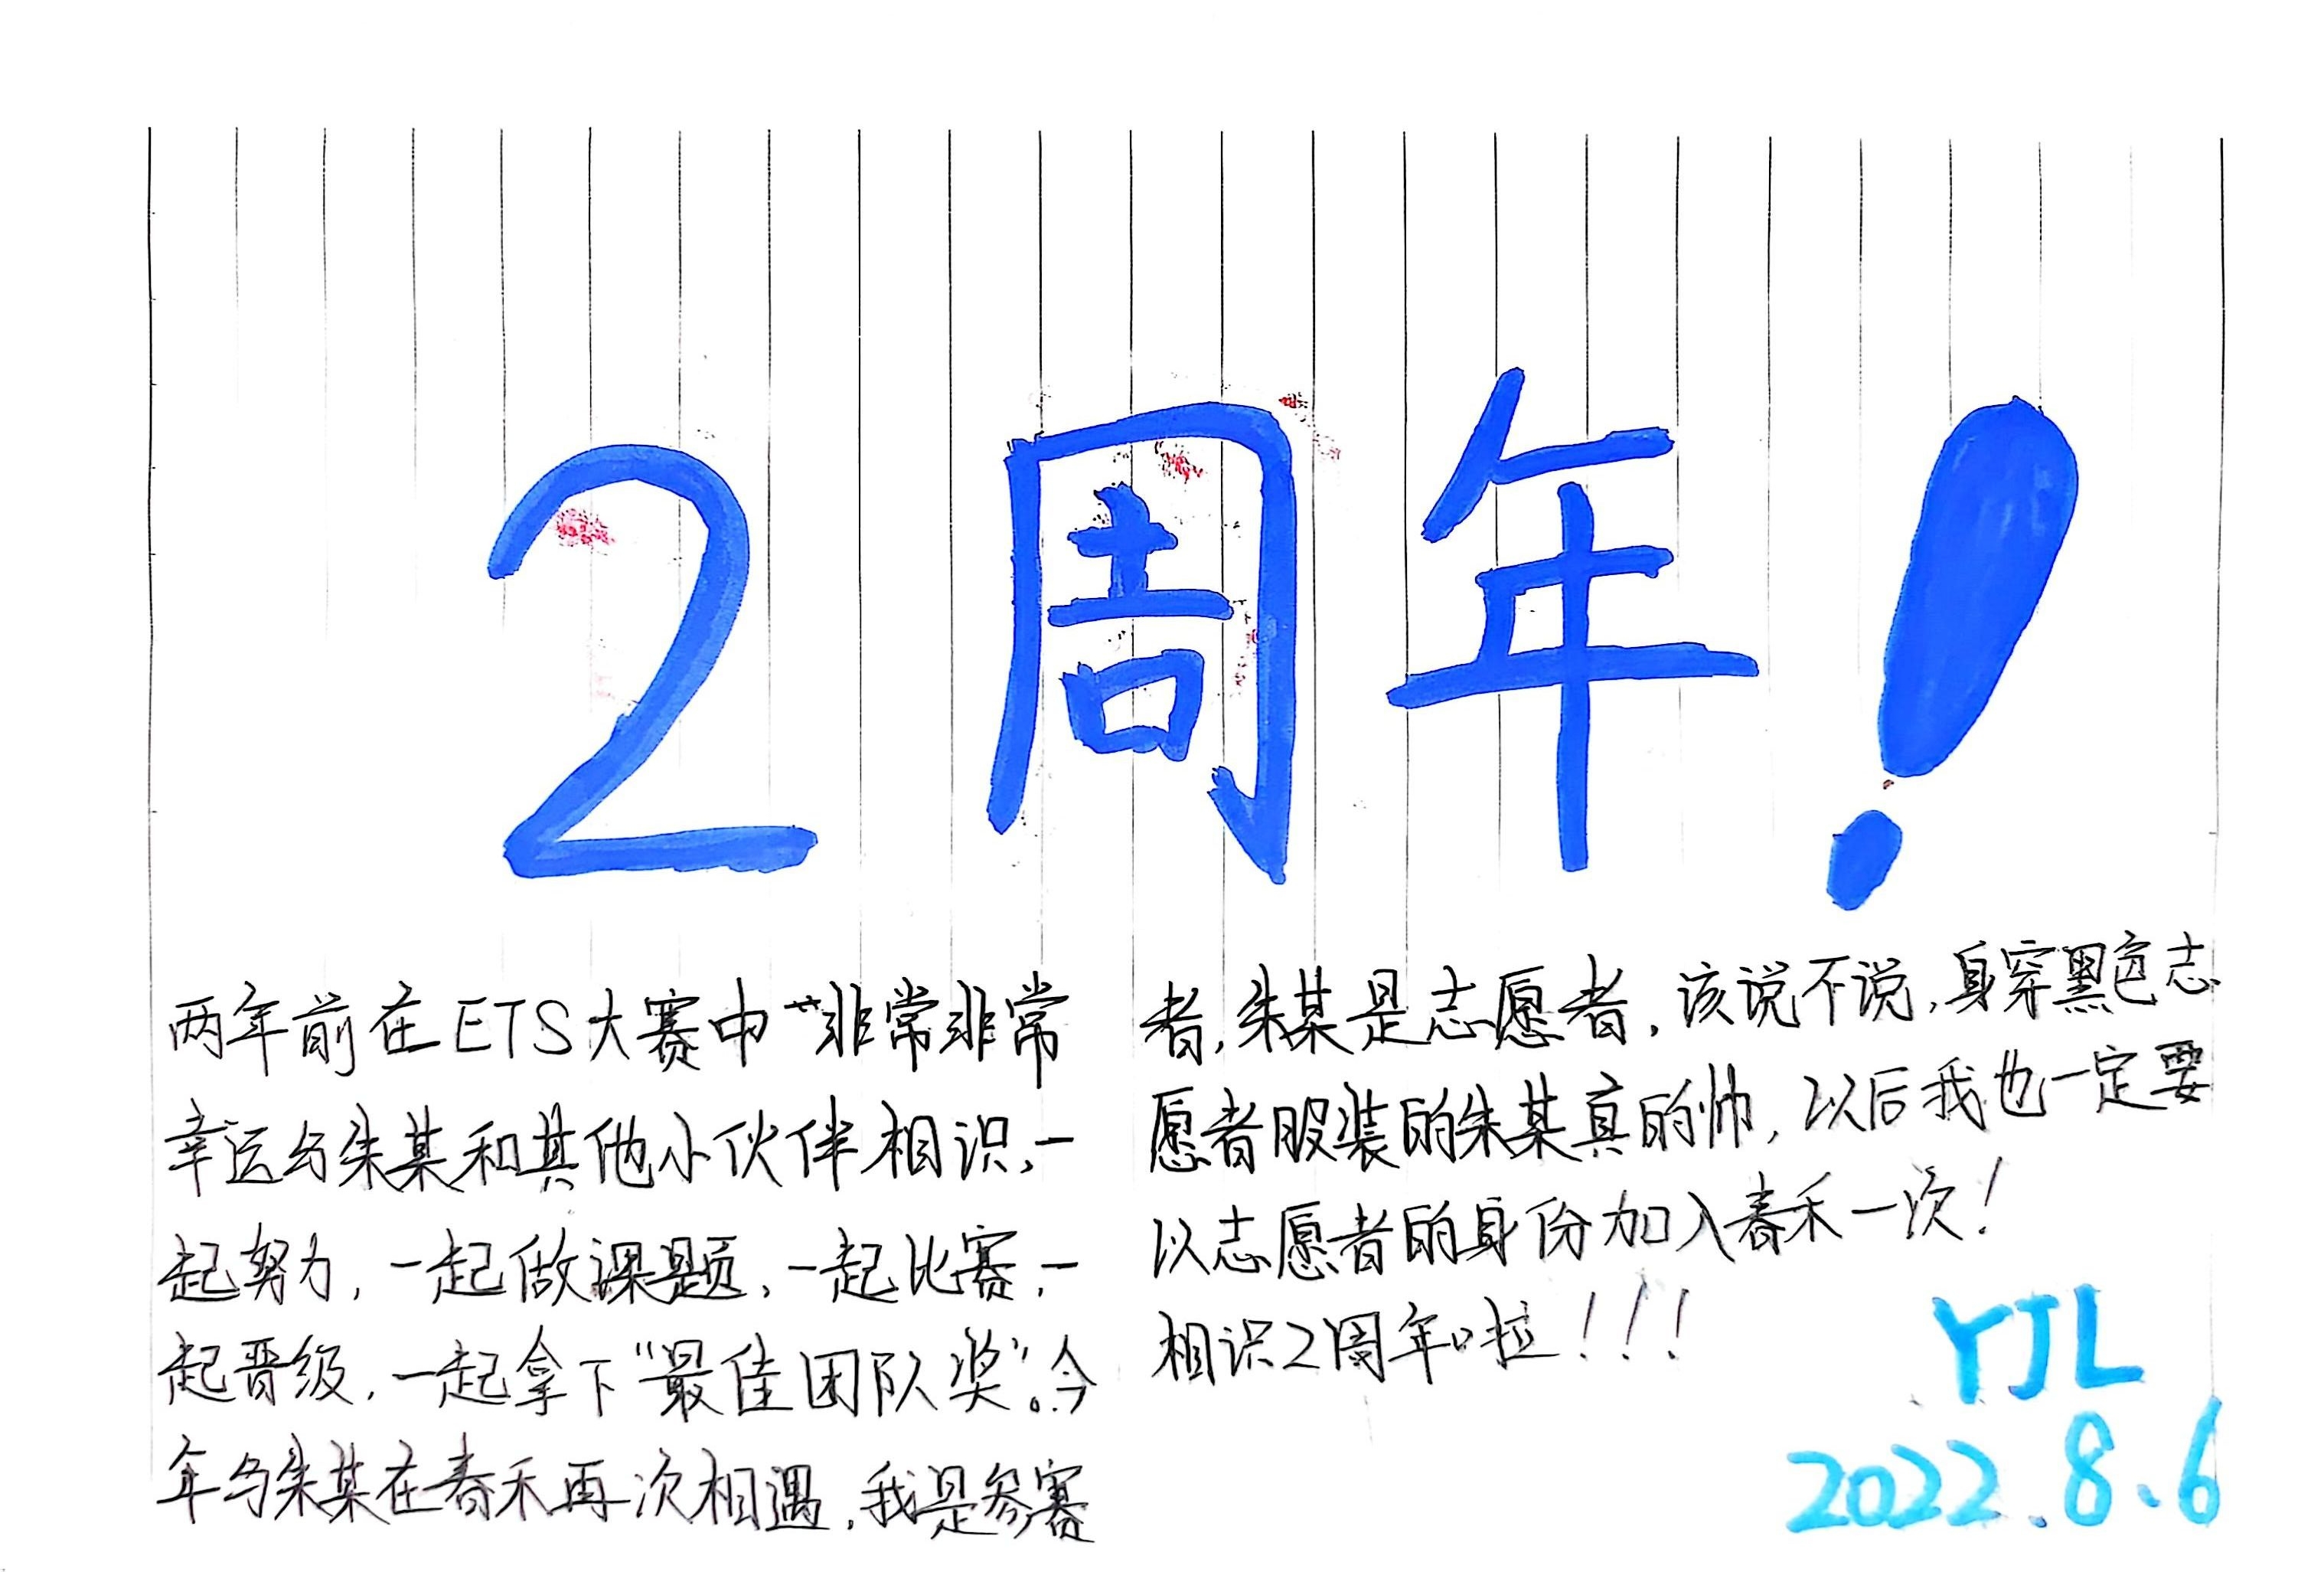 2周年!
两年前在ETS大赛中“非常非常
幸运与朱某和其他小伙伴相识,一
起努力,一起做课题,一起比赛,一
起晋级,一起拿下“最佳团队奖”。今
年与朱某在春禾再次相遇,我是参赛
者,朱某是志愿者,该说不说,身穿黑色志
愿者服装的朱某真的帅,以后我也一定要
以志愿者的身份加入春禾一次!
相识2周年啦!!!
YJL
2022.8、6